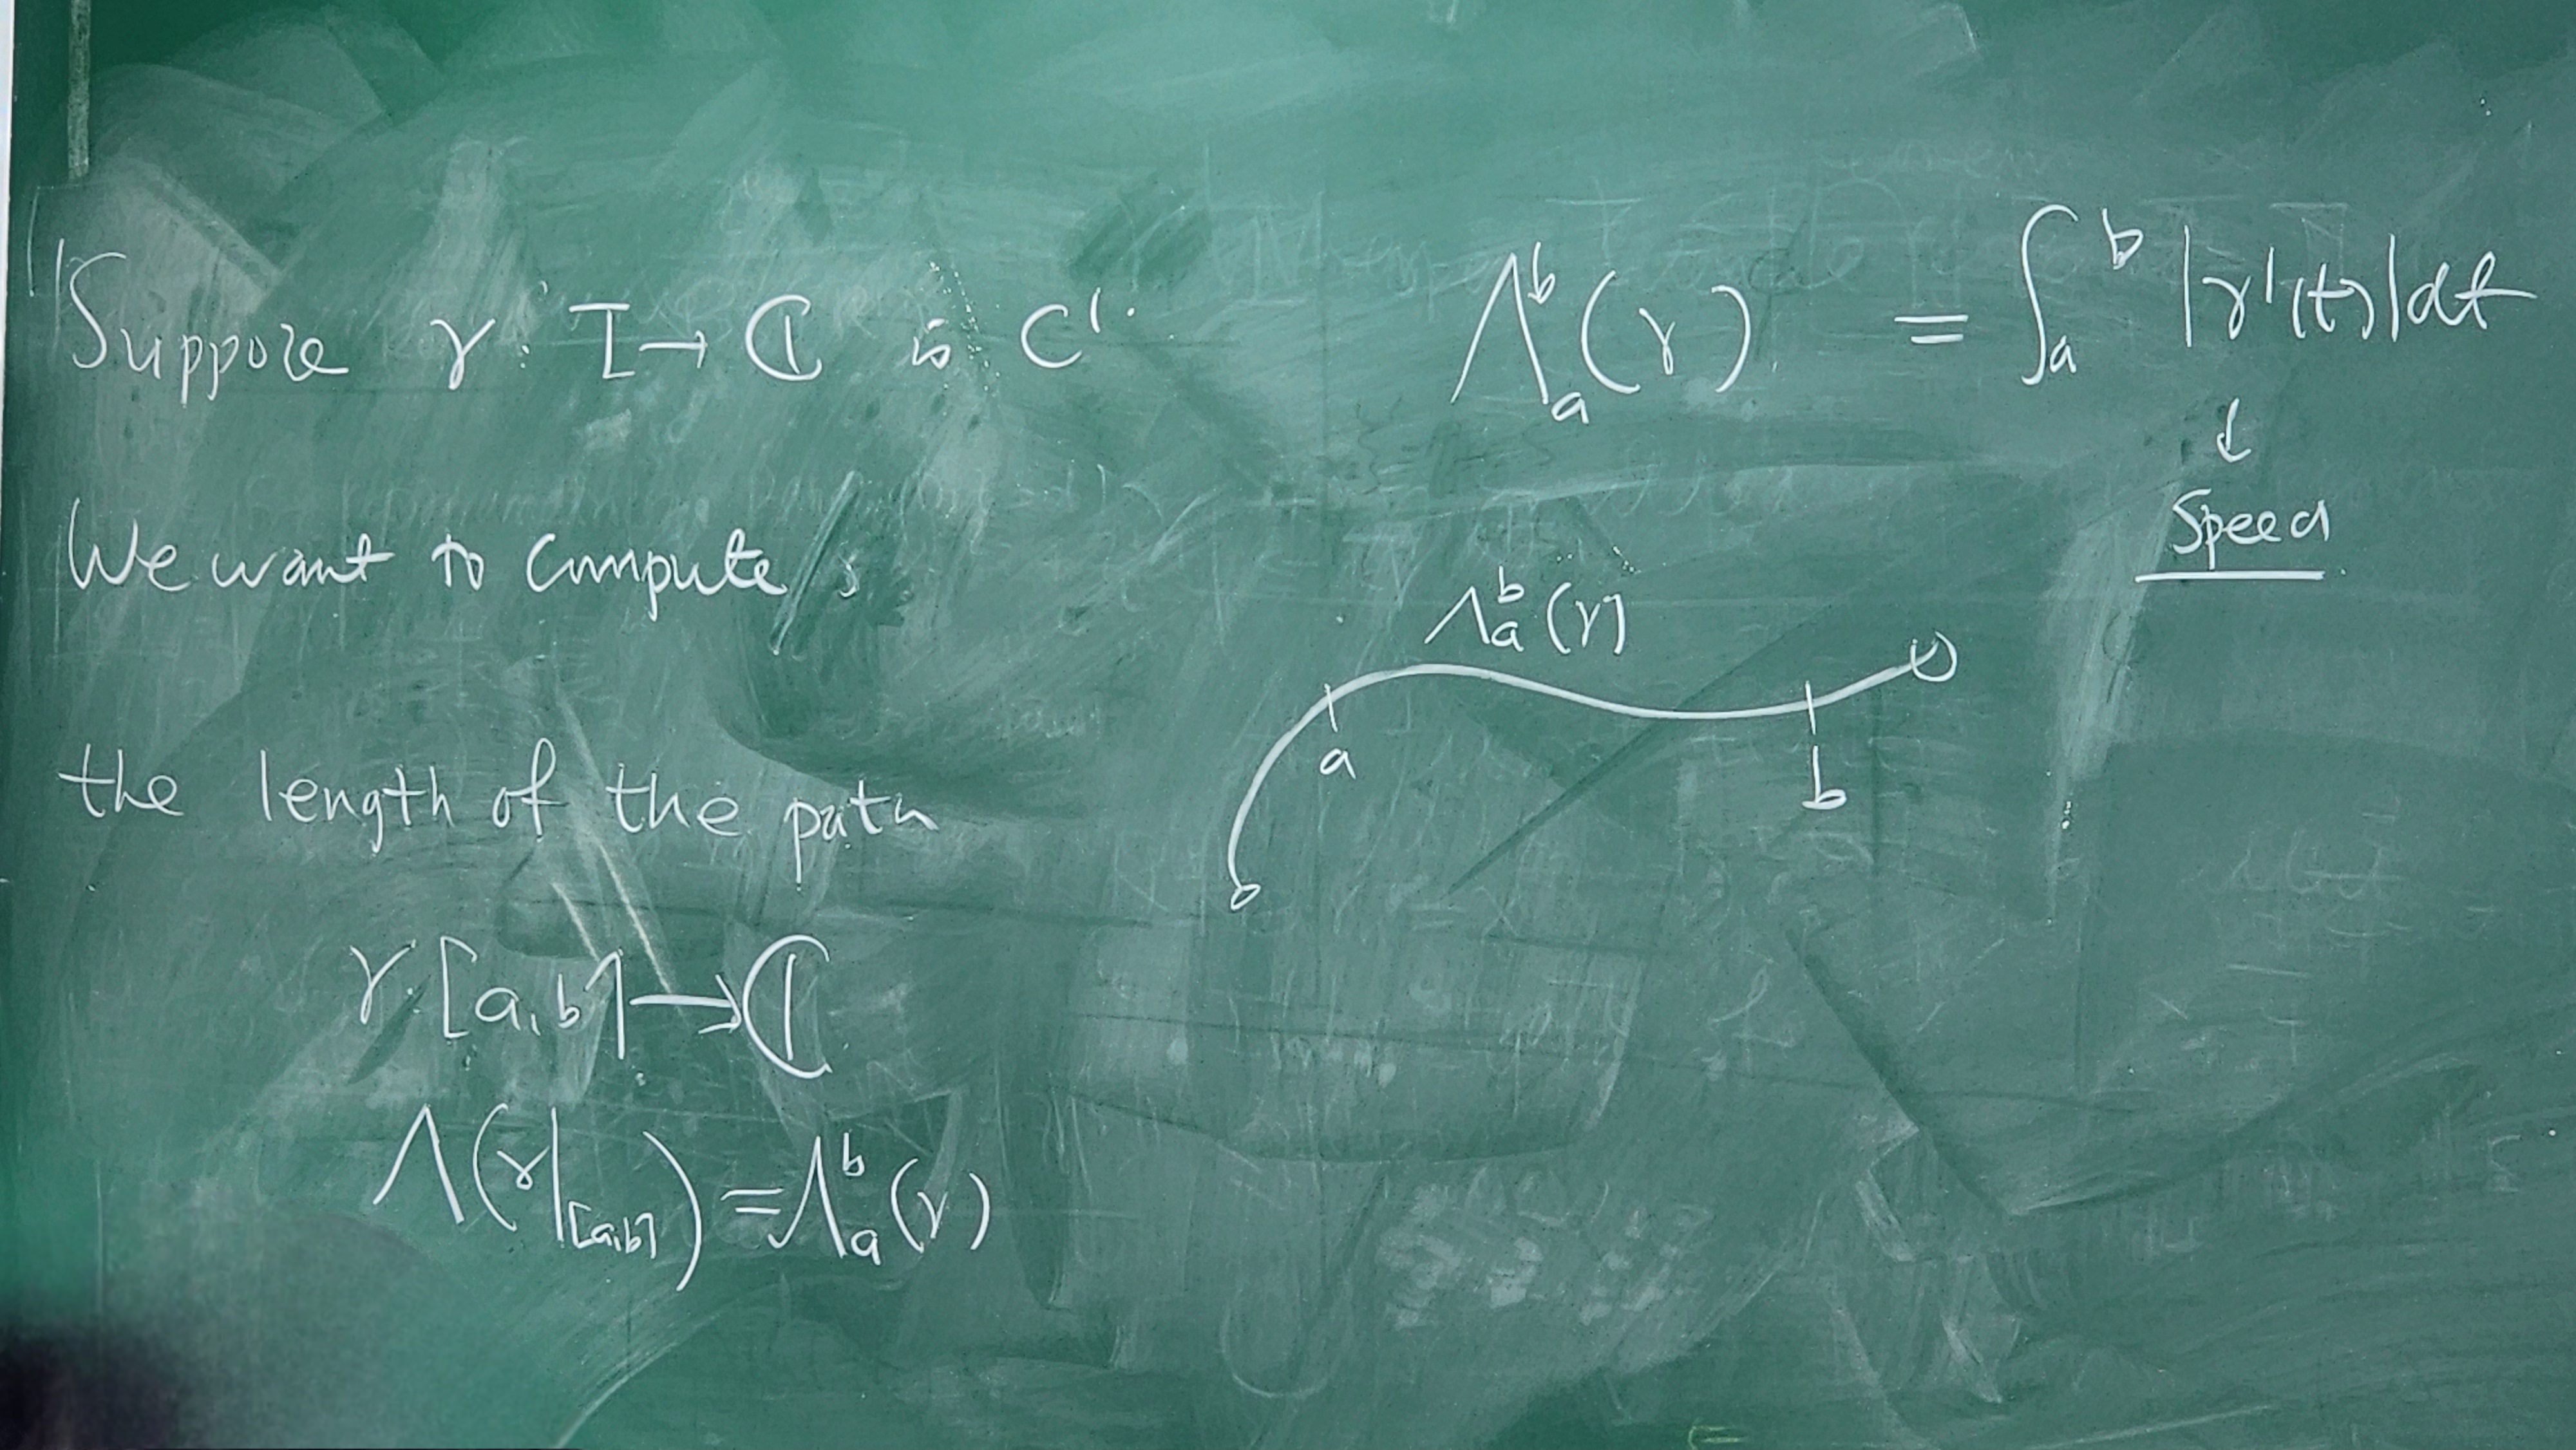 Suppose γ: I → ℂ is C¹.
We want to compute
the length of the path
γ: [a,b] → ℂ
Λ(γ|[a,b]) = Λₐᵇ(γ)
Λₐᵇ(γ) = ∫ₐᵇ |γ'(t)|dt
↓
Speed
Λₐᵇ(γ)
a
b